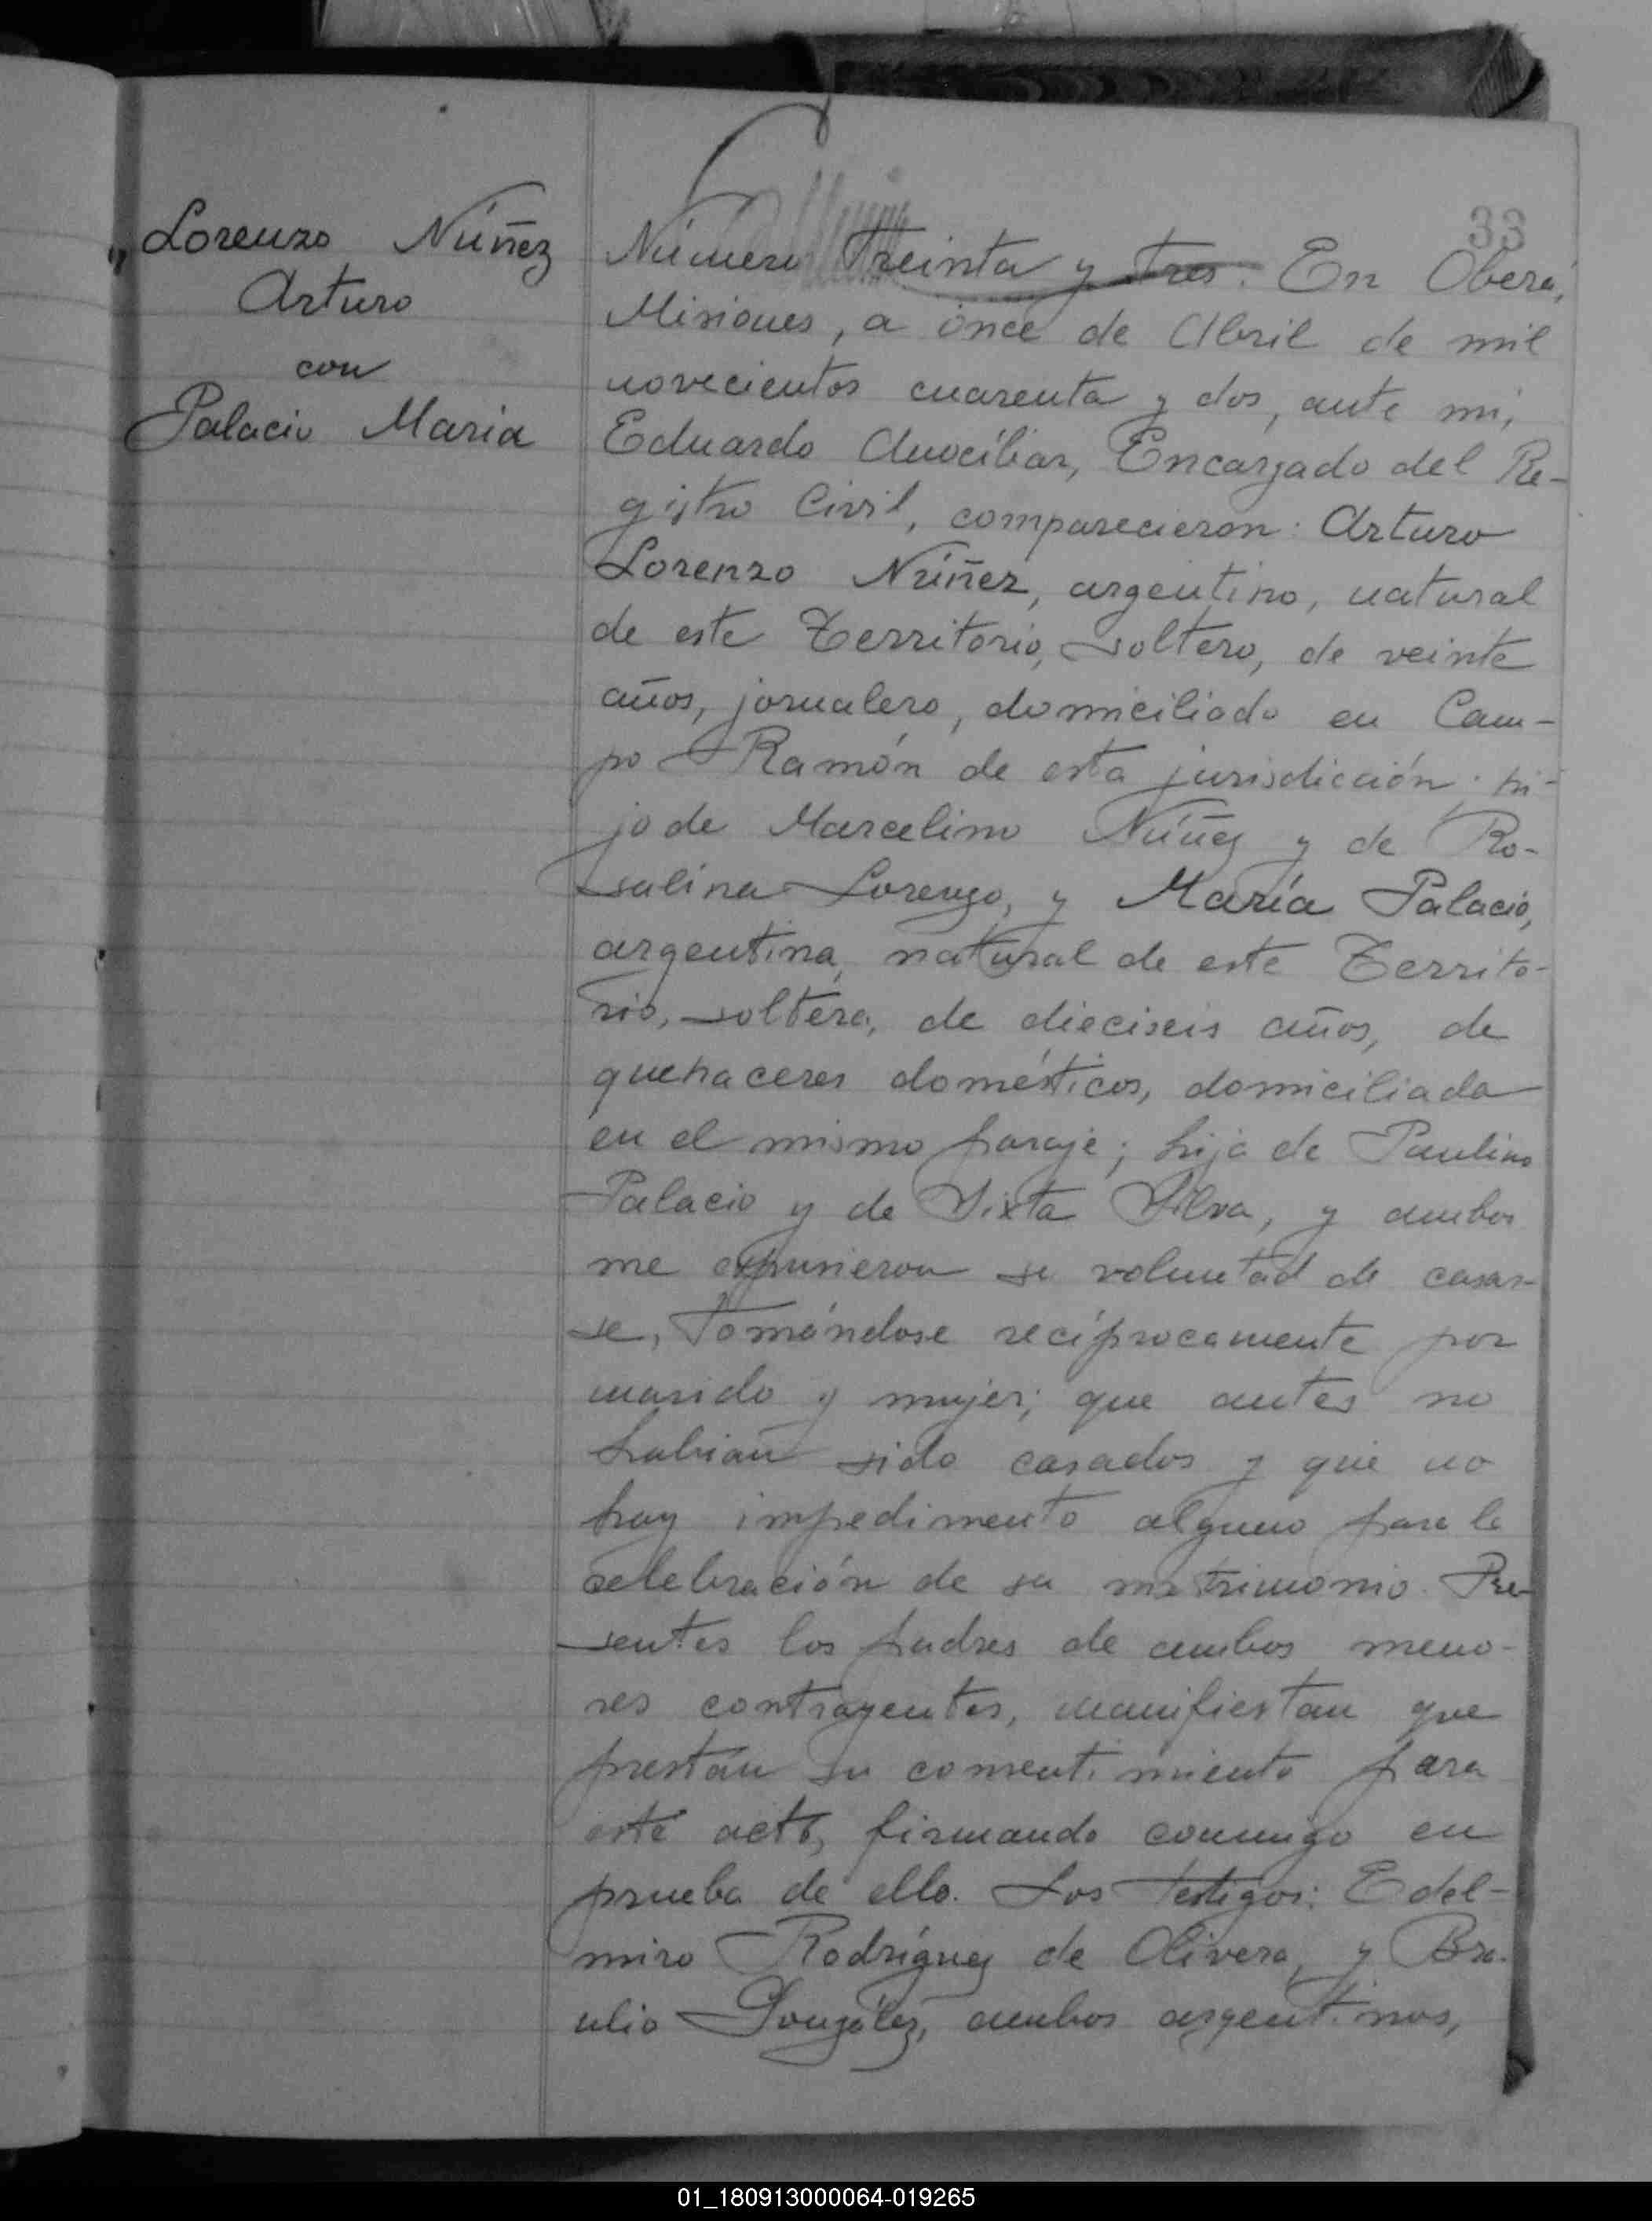 33
Lorenzo Núñez
Arturo
con
Palacio Maria
Número Treinta y tres. En Oberá,
Misiones, a once de Abril de mil
novecientos cuarenta y dos, ante mí,
Eduardo Encargado del Re-
gistro Civil, comparecieron: Arturo
Lorenzo Núñez, argentino, natural
de este Territorio, soltero, de veinte
años, jornalero, domiciliado en Cam-
po Ramón de esta jurisdicción; hi-
jo de Marcelino Núñez y de Ro-
salina Lorenzo, y María Palacio,
argentina, natural de este Territo-
rio, soltera, de dieciseis años, de
quehaceres domésticos, domiciliada
en el mismo paraje; hija de Paulino
Palacio y de Sixta Silva, y ambos
me expusieron su voluntad de casar-
se, tomándose recíprocamente por
marido y mujer; que antes no
habian sido casados y que no
hay impedimento alguno para la
celebración de su matrimonio. Pre-
sentes los padres de ambos meno-
res contrayentes, manifiestan que
prestan su consentimiento para
este acto, firmando conmigo en
prueba de ello. Los testigos: Edel-
miro Rodríguez de Olivera, y Bra-
ulio González, ambos argentinos,
01_180913000064-019265